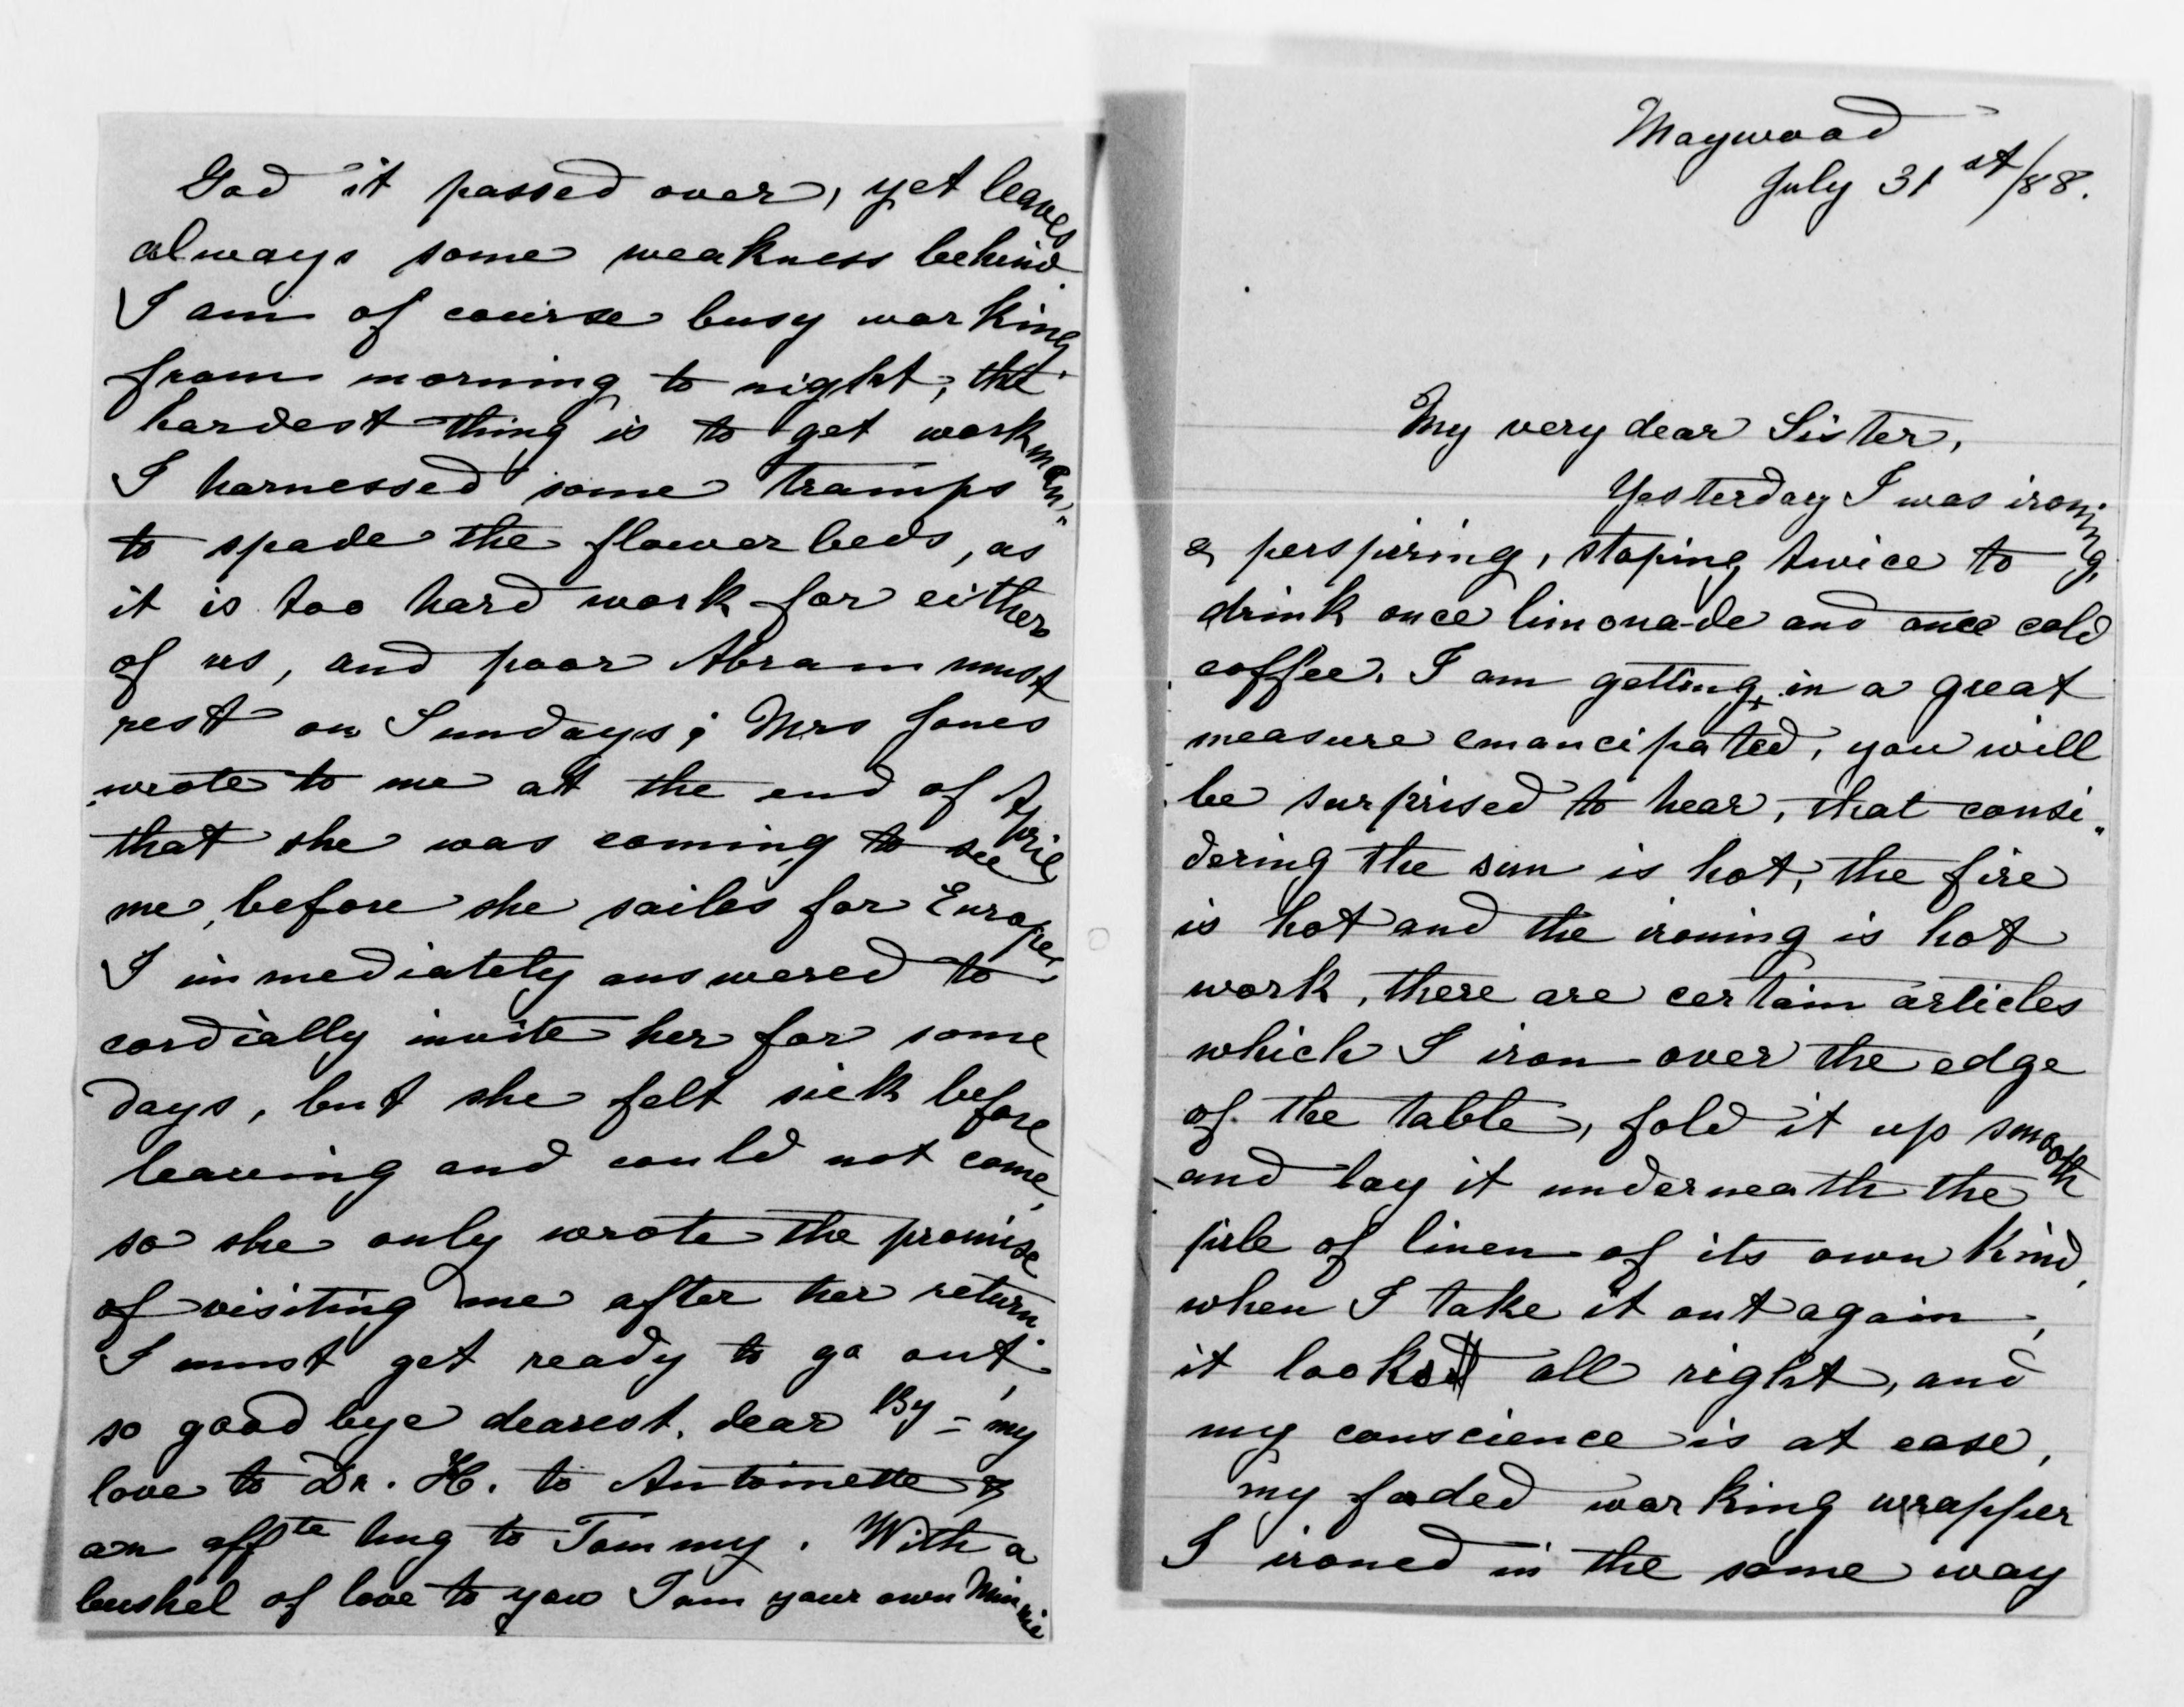 God it passed over, yet leaves
always some weakness behind.
I am of course busy working
from morning to night, the
hardest thing is to get workmen.
I harnessed some tramps
to spade the flowerbeds, as
it is too hard work for either
of us, and poor Abram must
rest on Sundays; Mrs Jones
wrote to me at the end of April
that she was coming to see
me, before she sailes for Europe,
I immediately answered to
cordially invite her for some
days, but she felt sick before
leaving and could not come,
so she only wrote the promise
of visiting me after her return.
I must get ready to go out,
so good bye dearest, dear By = my
love to Dr. H. to Antoinette &
an affte hug to Tommy. With a
bushel of love to you I am your own Minnie
Maywood
July 31st/88.
My very dear Sister,
Yesterday I was ironing,
& perspiring, stoping twice to
drink once limonade and once cold
coffee. I am getting, in a great
measure emancipated, you will
be surprised to hear, that consi"
dering the sun is hot, the fire
is hot and the ironing is hot
work, there are certain articles
which I iron over the edge
of the table, fold it up smooth
and lay it underneath the
pile of linen of its own kind,
when I take it out again,
it looks all right, and
my conscience is at ease,
my faded working wrapper
I ironed in the same way